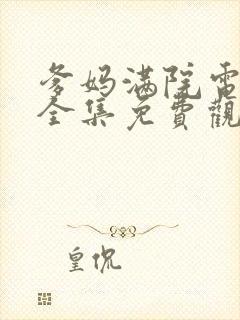 爹妈满院電
全集免費觀
皇侃